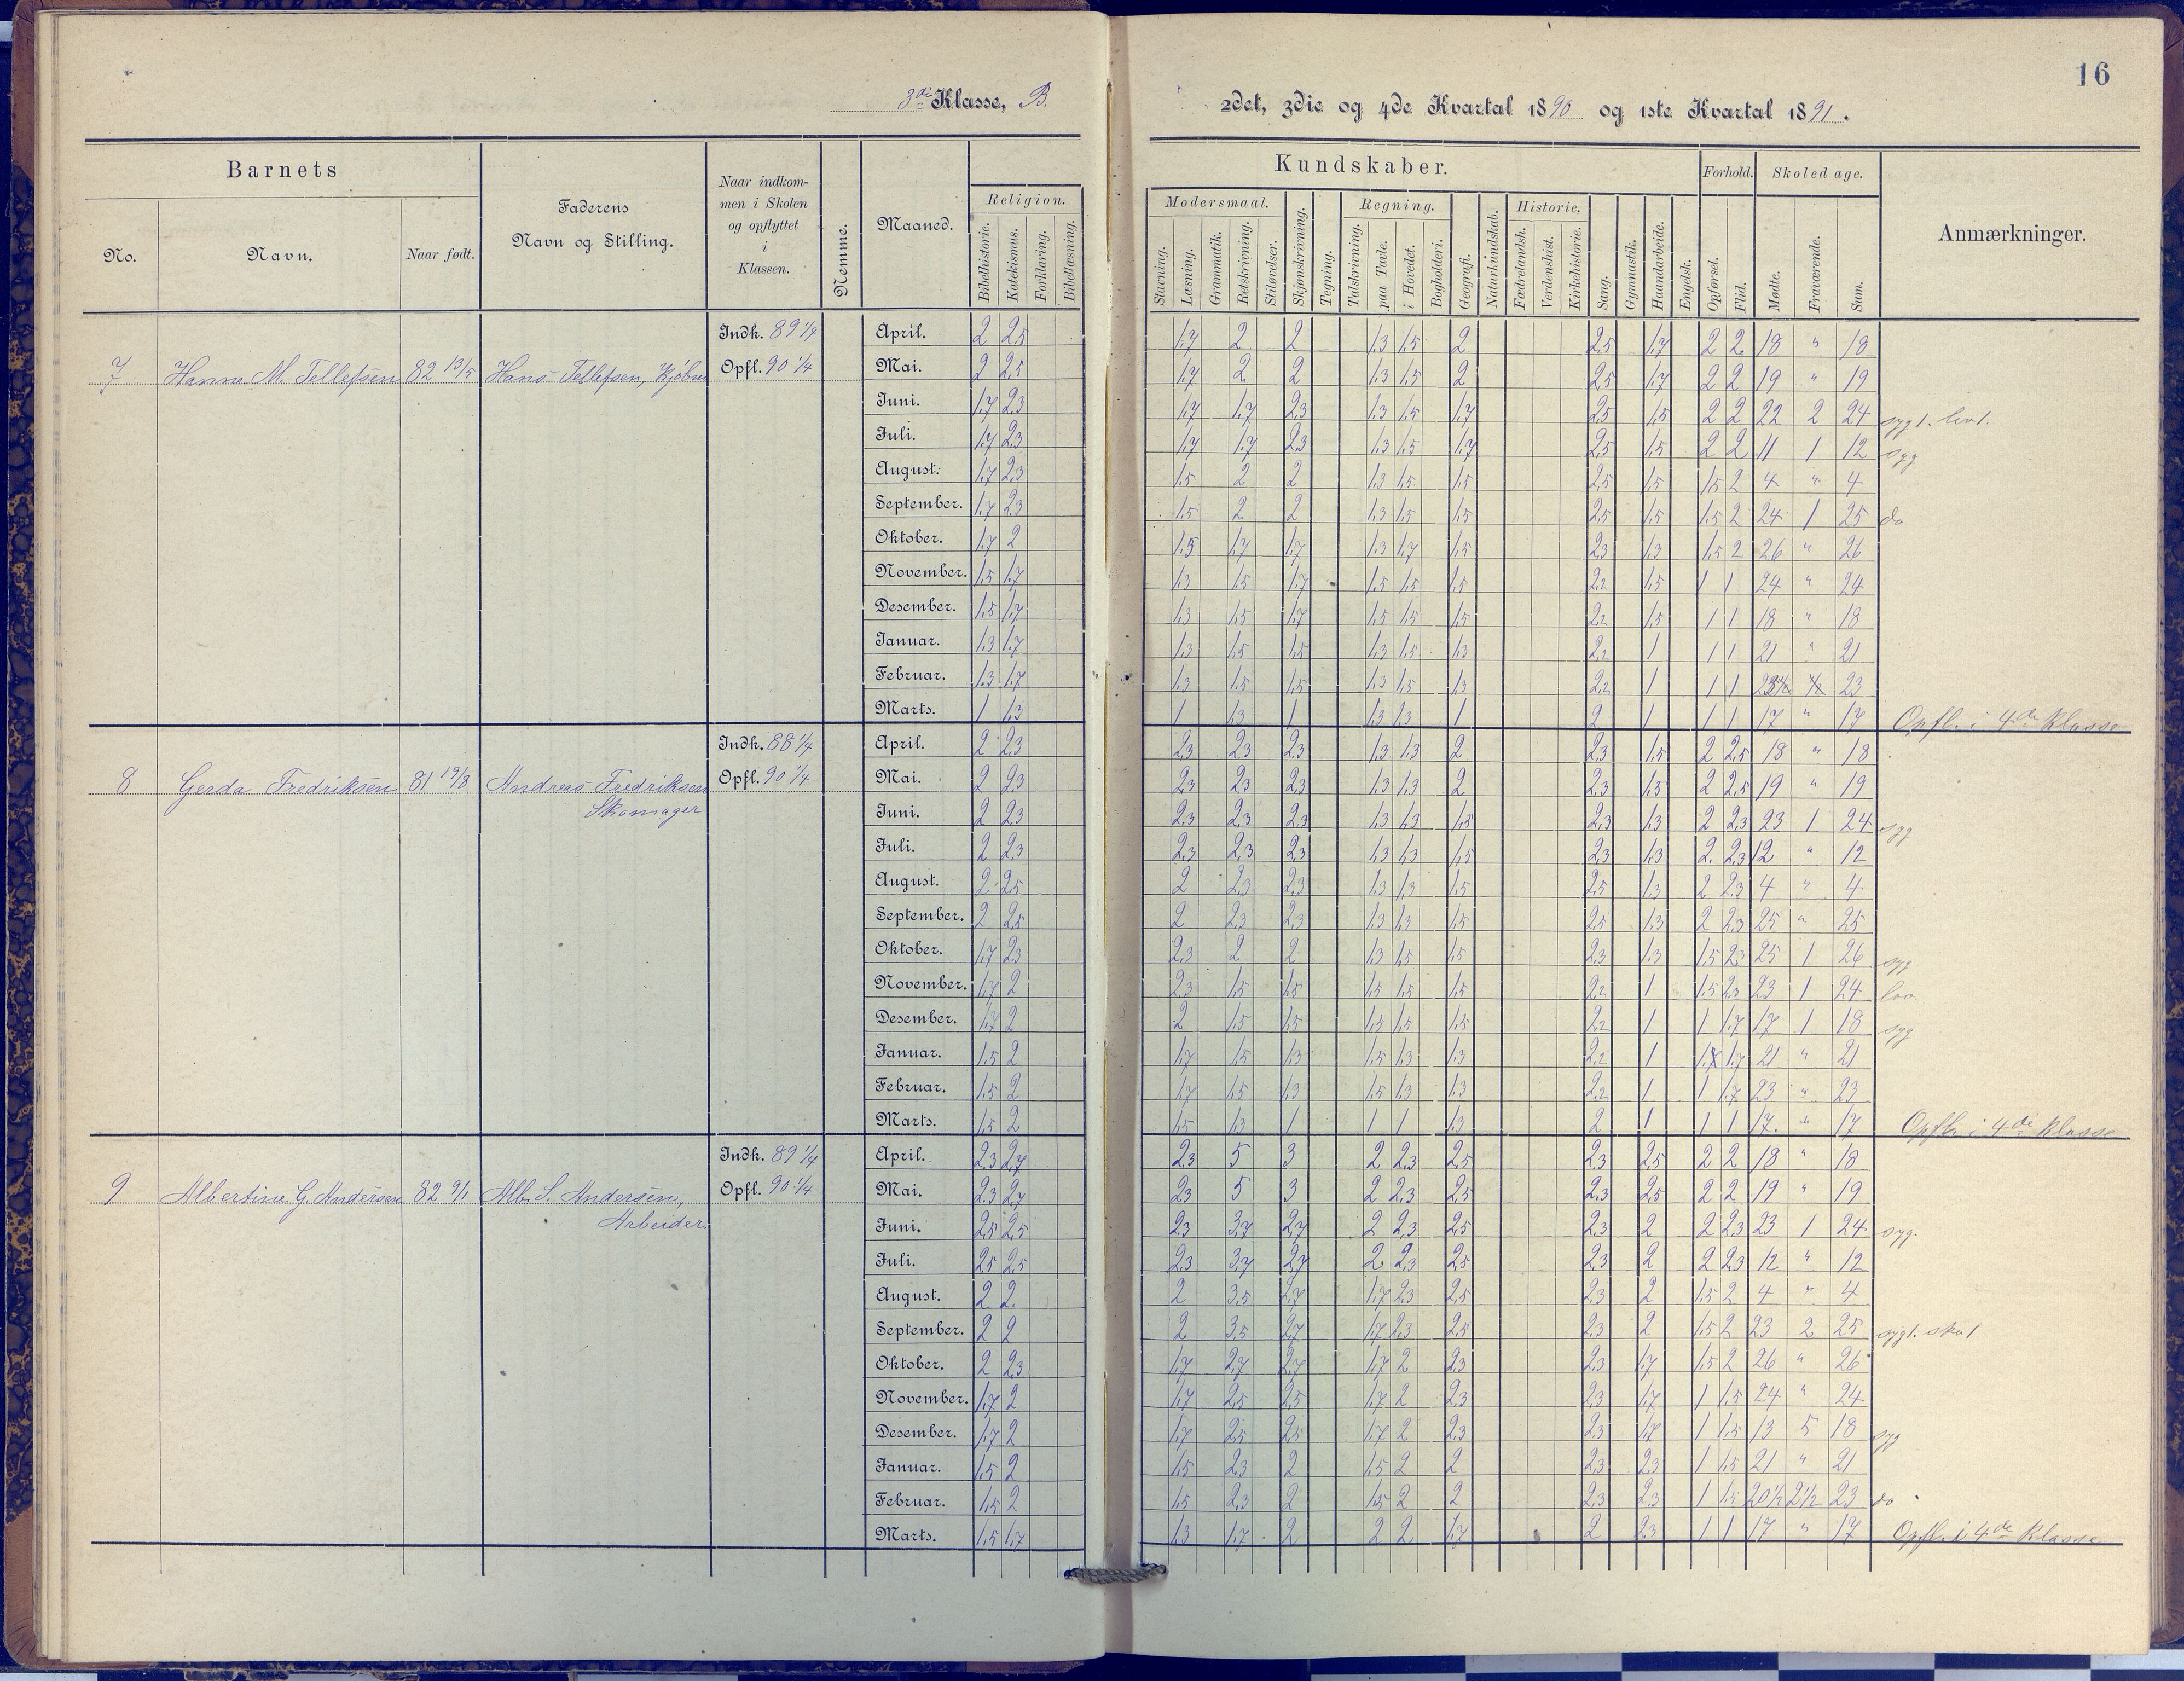 16
3die Klasse, B.
2det, 3die og 4de Kvartal 1890 og 1ste Kvartal 1891.
Barnets
No.
Navn.
Naar født.
Faderens
Navn og Stilling.
Naar indkom-
men i Skolen
og opflyttet
i
Klassen.
Nemme.
Maaned.
Kundskaber.
Religion.
Bibelhistorie.
Katekismus.
Forklaring.
Bibellæsning.
Modersmaal.
Stavning.
Læsning.
Grammatik.
Retskrivning.
Stiløvelser.
Skjønskrivning.
Tegning.
Regning.
Talskrivning.
paa Tavle.
i Hovedet.
Bogholderi.
Geografi.
Naturkundskab.
Historie.
Fædrelandsh.
Verdenshist.
Kirkehistorie.
Sang.
Gymnastik.
Haandarbeide.
Engelsk.
Forhold.
Opførsel.
Flid.
Skoledage.
Mødte.
Fraværende.
Sum.
Anmærkninger.
7 Hanne M. Tellefsen 82 13/5 Hans Tellefsen, Kjøbm
Indk. 89 1/4
Opfl. 90 1/4
April. 2 2,5 1,7 2 2 1,3 1,5 2 2,5 1,7 2 2 18 " 18
Mai. 2 2,5 1,7 2 2 1,3 1,5 2 2,5 1,7 2 2 19 " 19
Juni. 1,7 2,3 1,7 1,7 2,3 1,3 1,5 1,7 2,5 1,5 2 2 22 2 24 sygt. levt.
Juli. 1,7 2,3 1,7 1,7 2,3 1,3 1,5 1,7 2,5 1,5 2 2 11 1 12 syg
August. 1,7 2,3 1,5 2 2 1,3 1,5 1,5 2,5 1,5 1,5 2 4 " 4
September. 1,7 2,3 1,5 2 2 1,3 1,5 1,5 2,5 1,5 1,5 2 24 1 25 do
Oktober. 1,7 2 1,5 1,7 1,7 1,3 1,7 1,5 2,3 1,3 1,5 2 26 " 26
November. 1,5 1,7 1,3 1,5 1,7 1,5 1,5 1,5 2,2 1,5 1 1 24 " 24
Desember. 1,5 1,7 1,3 1,5 1,7 1,5 1,5 1,5 2,2 1,5 1 1 18 " 18
Januar. 1,3 1,7 1,3 1,5 1,5 1,3 1,5 1,3 2,2 1 1 1 21 " 21
Februar. 1,3 1,7 1,3 1,5 1,5 1,3 1,5 1,3 2,2 1 1 1 23 23
Marts. 1 1,3 1 1,3 1 1,3 1,3 1 2 1 1 1 17 " 17 Opfl. i 4de Klasse
8 Gerda Fredriksen 81 19/8 Andreas Fredriksen
Skomager
Indk. 88 1/4
Opfl. 90 1/4
April. 2 2,3 2,3 2,3 2,3 1,3 1,3 2 2,3 1,5 2 2,5 18 " 18
Mai. 2 2,3 2,3 2,3 2,3 1,3 1,3 2 2,3 1,5 2 2,5 19 " 19
Juni. 2 2,3 2,3 2,3 2,3 1,3 1,3 1,5 2,3 1,3 2 2,3 23 1 24 syg
Juli. 2 2,3 2,3 2,3 2,3 1,3 1,3 1,5 2,3 1,3 2 2,3 12 " 12
August. 2 2,5 2 2,3 2,3 1,3 1,3 1,5 2,5 1,3 2 2,3 4 " 4
September. 2 2,5 2 2,3 2,3 1,3 1,3 1,5 2,5 1,3 2 2,3 25 " 25
Oktober. 1,7 2,3 2,3 2 2 1,3 1,5 1,5 2,3 1,3 1,5 2,3 25 1 26 syg
November. 1,7 2 2,3 1,5 1,5 1,5 1,5 1,5 2,2 1 1,5 2,3 23 1 24 lov
Desember. 1,7 2 2 1,5 1,5 1,5 1,5 1,5 2,2 1 1 1,7 17 1 18 syg
Januar. 1,5 2 1,7 1,5 1,3 1,5 1,3 1,3 2,2 1 1 1,7 21 " 21
Februar. 1,5 2 1,7 1,5 1,3 1,5 1,3 1,3 2,2 1 1 1,7 23 " 23
Marts. 1,5 2 1,5 1,3 1 1 1 1,3 2 1 1 1 17 " 17 Opfl. i 4de Klasse
9 Albertine G. Andersen 82 9/1 Alb. S. Andersen,
Arbeider.
Indk. 89 1/4
Opfl. 90 1/4
April. 2,3 2,7 2,3 5 3 2 2,3 2,5 2,3 2,5 2 2 18 " 18
Mai. 2,3 2,7 2,3 5 3 2 2,3 2,5 2,3 2,5 2 2 19 " 19
Juni. 2,5 2,5 2,3 3,7 2,7 2 2,3 2,5 2,3 2 2 2,3 23 1 24 syg.
Juli. 2,5 2,5 2,3 3,7 2,7 2 2,3 2,5 2,3 2 2 2,3 12 " 12
August. 2 2 2 3,5 2,7 1,7 2,3 2,5 2,3 2 1,5 2 4 " 4
September. 2 2 2 3,5 2,7 1,7 2,3 2,5 2,3 2 1,5 2 23 2 25 sygt. skot
Oktober. 2 2,3 1,7 2,7 2,7 1,7 2 2,3 2,3 1,7 1,5 2 26 " 26
November. 1,7 2 1,7 2,5 2,5 1,7 2 2,3 2,3 1,7 1 1,5 24 " 24
Desember. 1,7 2 1,7 2,5 2,5 1,7 2 2,3 2,3 1,7 1 1,5 13 5 18 syg
Januar. 1,5 2 1,5 2,3 2 1,5 2 2 2,3 2,3 1 1,5 21 " 21
Februar. 1,5 2 1,5 2,3 2 1,5 2 2 2,3 2,3 1 1,5 20 1/2 2 1/2 23 do
Marts. 1,5 1,7 1,3 1,7 2 2 2 1,7 2 2,3 1 1 17 " 17 Opfl. i 4de Klasse